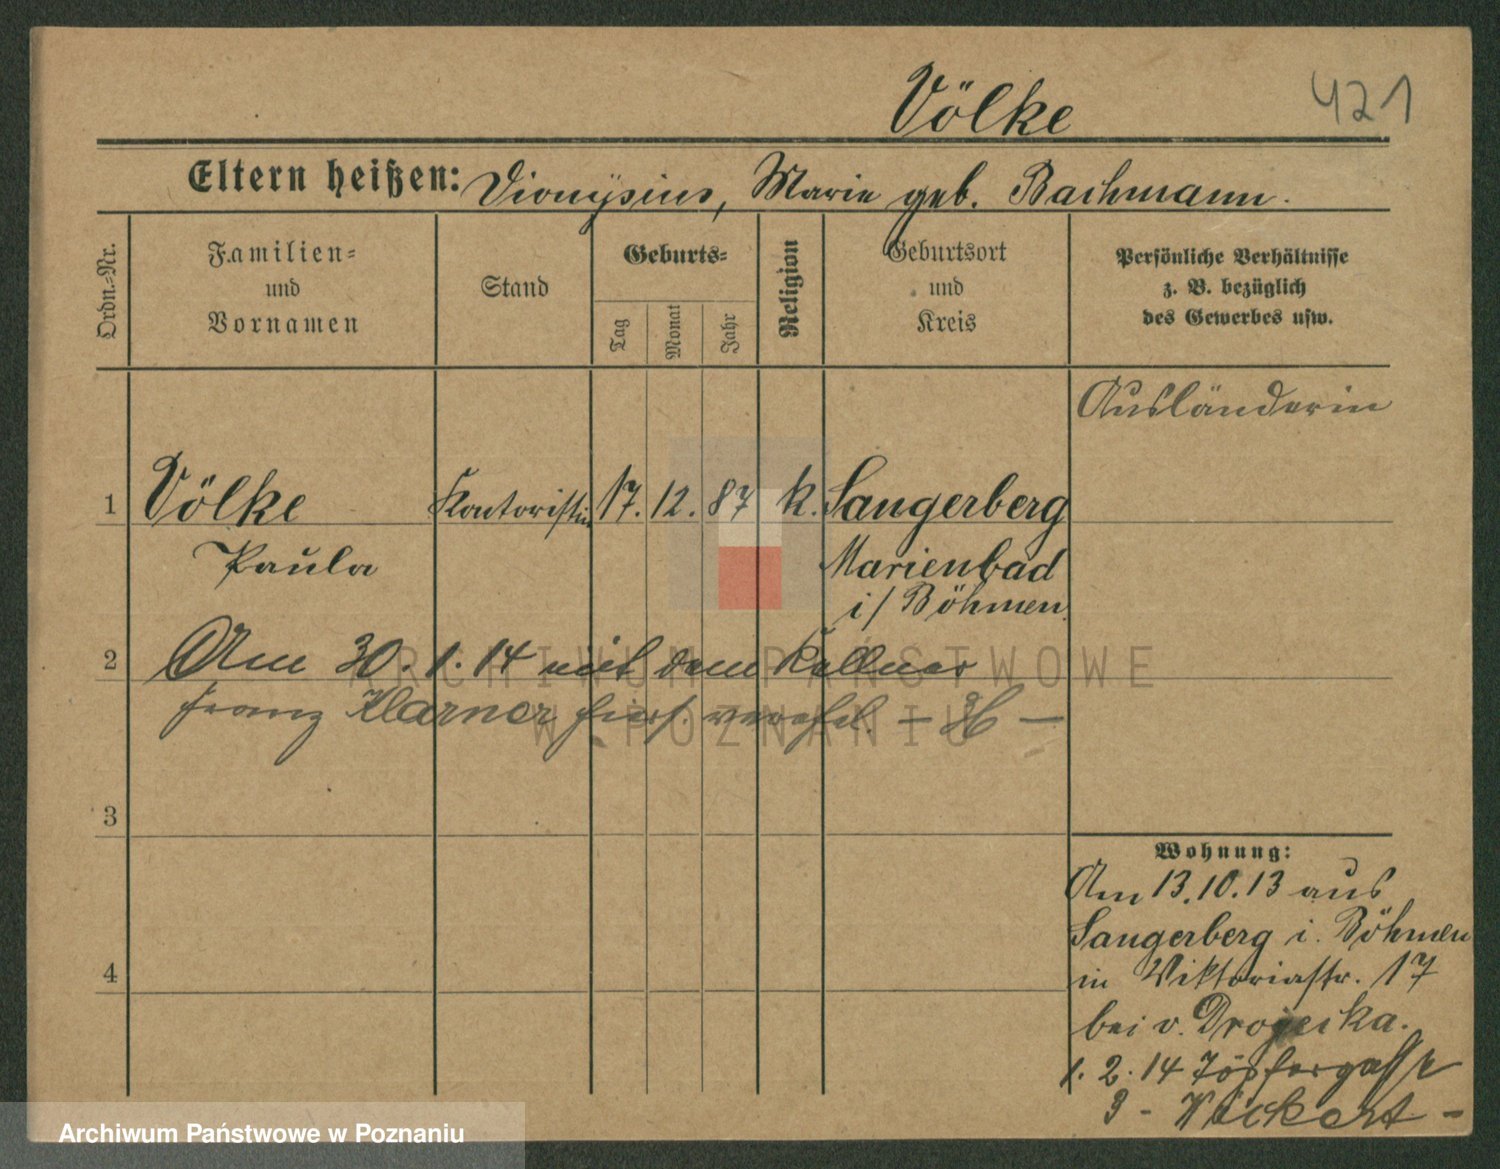 Völke
421
Eltern heißen: Dionysius, Marie geb. Bachmann.
Ordn.-Nr.
Familien- und Vornamen
Stand
Geburts-
Tag
Monat
Jahr
Religion
Geburtsort und Kreis
Persönliche Verhältnisse
z. B. bezüglich
des Gewerbes usw.
Ausländerin
1 Völke Kontoristin 17. 12. 87 k. Sangerberg
Paula Marienbad
i/ Böhmen
2 Am 30. 1. 14 mit dem Kellner
Franz Klarner hier verehel. – H –
3
4
Wohnung:
Am 13. 10. 13 aus
Sangerberg i. Böhmen
in Viktoriastr. 17
bei v.
1. 2. 14 Töpfergasse
3 -
ARCHIWUM PAŃSTWOWE
W POZNANIU
Archiwum Państwowe w Poznaniu